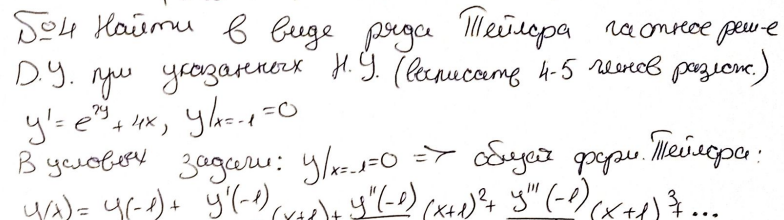 №4 Найти в виде ряда Тейлора частное реш-е
Д.У. при указанных Н.У. (выписать 4-5 членов разлож.)
y' = e^{2y} + 4x, y|x=-1 = 0
В условиях задачи: y|x=-1 = 0 => общая форм. Тейлора:
y(x) = y(-1) + y'(-1) (x+1) + y''(-1) (x+1)² + y'''(-1) (x+1)³ + ...